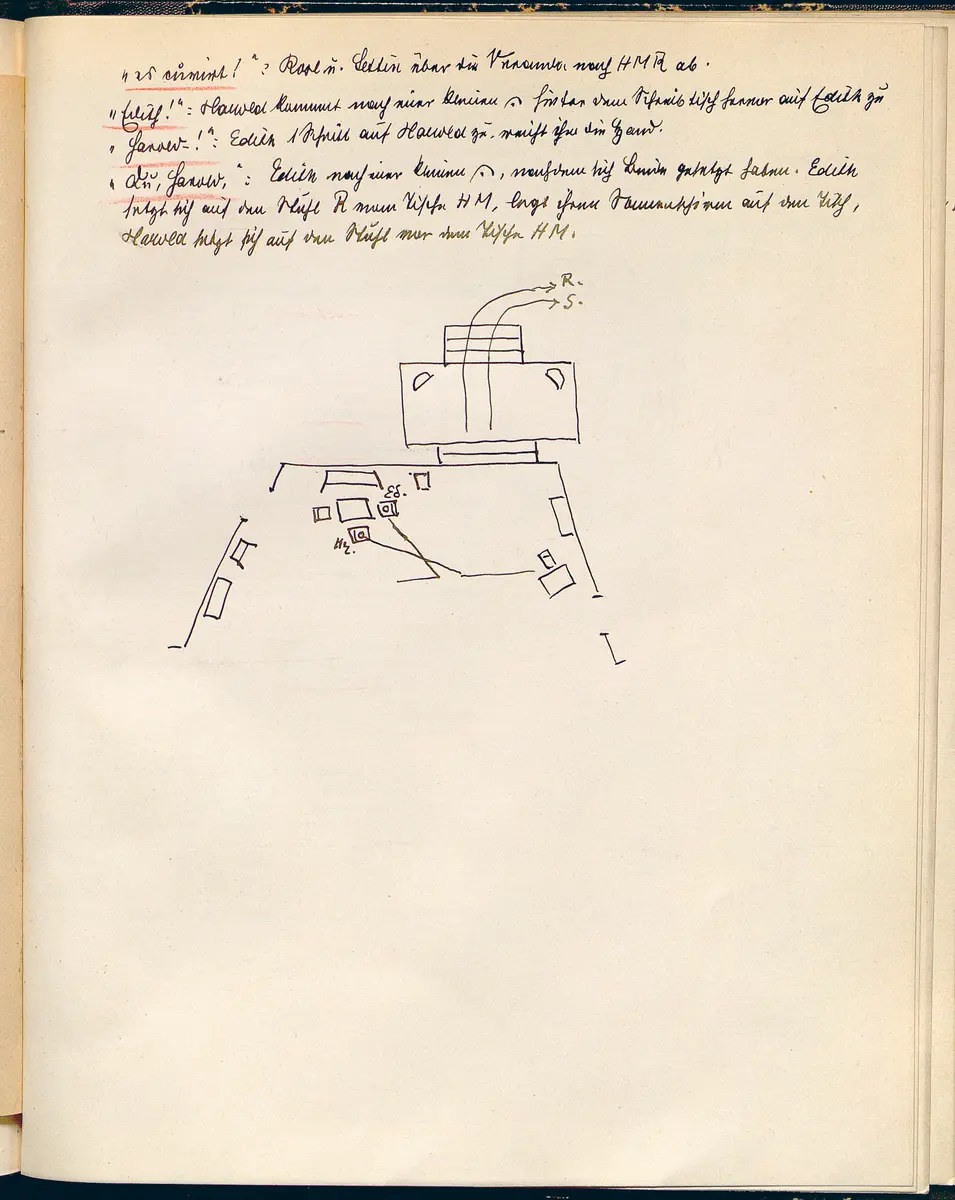 „es cuvirt!“: Roel u. Settin über die Veranda nach HMR ab.
„Edith!“: Harold kommt nach einer kleinen hinter dem Schreibtisch hervor auf Edith zu
„Harold-!“: Edith 1 Schritt auf Harold zu, reicht ihm die Hand.
„Du, Harold,“: Edith nach einer kleinen , nachdem sich Beide gesetzt haben. Edith
setzt sich auf den Stuhl R vom Tische HM, legt ihren Sonnenschirm auf den Tisch,
Harold setzt sich auf den Stuhl vor dem Tische HM.
R.
S.
Ed.